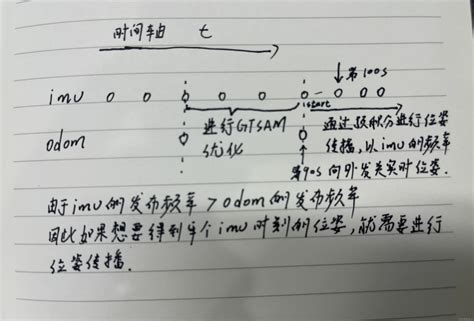 时间轴 t
↓第100s
imu
start
odom
进行GTSAM
优化
通过预积分进行位姿
传播,以imu的频率
第90s 向外发送实时位姿.
由于imu的发布频率>odom的发布频率
因此如果想要得到每个imu时刻的位姿,就需要进行
位姿传播.